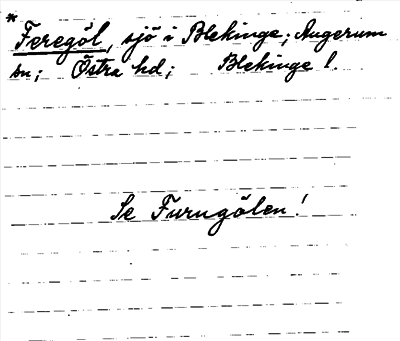 * Feregöl, sjö i Blekinge; Augerum
sn; Östra hd; Blekinge l.
Se Furugölen!